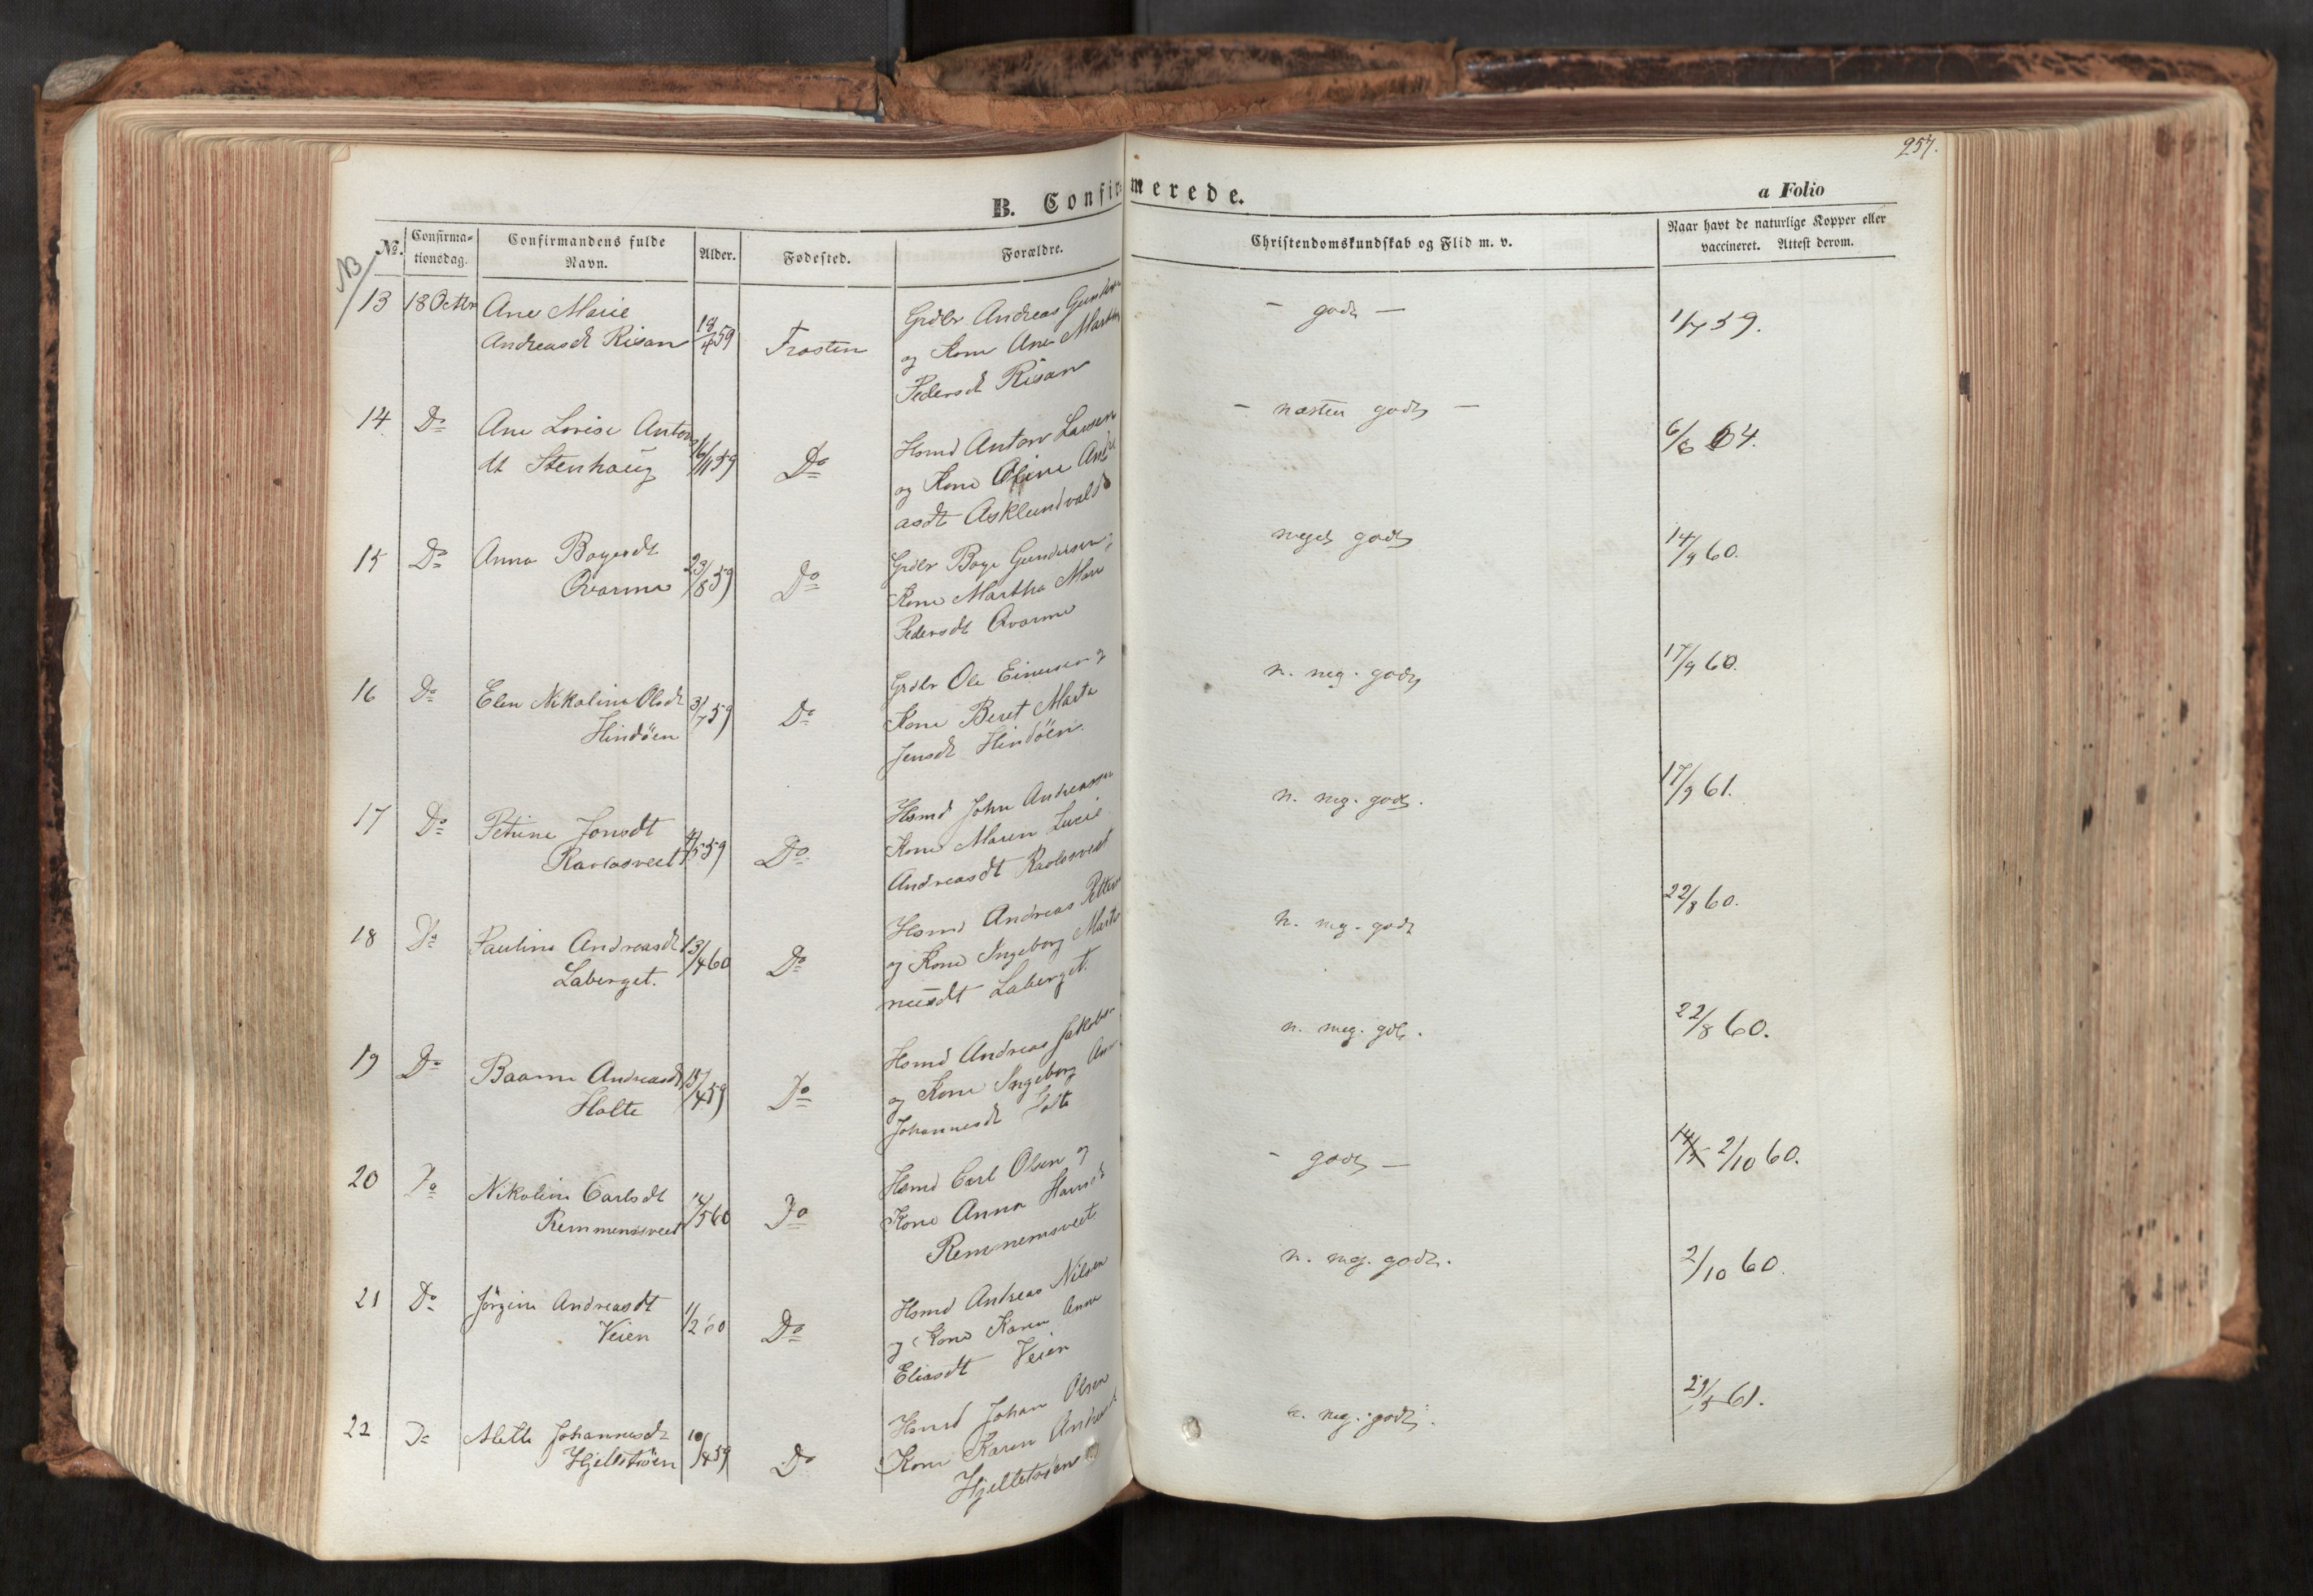 257.
B. Confirmerede.
a Folio
No. Confirma=tionsdag. Confirmandens fulde Navn. Alder. Fødested. Forældre. Christendomskundskab og Flid m. v. Naar havt de naturlige Kopper eller vaccineret. Attest derom.
NB
13 18 Octbr Ane Marie
Andreasdt Risan 18/4 59 Frosten
Grdbr Andreas
og Kone Ane
Pedersdt Risan
- godt -
1/7 59.
14 Do Ane Lovise Antons
dt Stenhaug 16/11 59 Do
Hsmd Anton Larsen
og Kone Oline
asdt Asklundvald
- næsten godt -
6/6 64.
15 Do Anna Boyesdt
Qvarme 23/8 59 Do
Grdbr Boye Gundersen
Kone Martha
Pedersdt Qvarme
meget godt
14/9 60.
16 Do Elen Nikoline Olsdt
Hindöen 3/7 59 Do
Grdbr Ole Einersen og
Kone Beret Marta
Jensdt Hindöen.
n. meg. godt
17/9 60.
17 Do Petrine Jonsdt
4/5 59 Do
Hsmd John Andreassen
Kone Maren Lucie
Andreasdt
n. meg. godt.
17/9 61.
18 Do Pauline Andreasdt
Laberget. 13/4 60 Do
Hsmd Andreas
og Kone Ingeborg Marti
nusdt Laberget.
n. meg. godt
22/8 60.
19 Do Andreasdt
Holte 15/4 59 Do
Hsmd Andreas Jakobs
og Kone Ingeborg
Johannesdt Holte
n. meg. godt.
22/8 60.
20 Do Nikoline Carlsdt
Remmemsveet 14/5 60 Do
Hsmd Carl Olsen og
Kone Anna Hansd
Remmemsveet
- godt -
2/10 60.
21 Do Jörgine Andreasdt
Veien 1/2 60 Do
Hsmd Andreas Nilsen
og Kone Karen Anna
Eliasdt Veien
n. meg. godt.
2/10 60.
22 Do Alette Johannesdt
Hjelletröen 10/4 59 Do
Hsmd Johan Olsen
Kone Karen
Hjelletröen
n. meg. godt.
29/5 61.